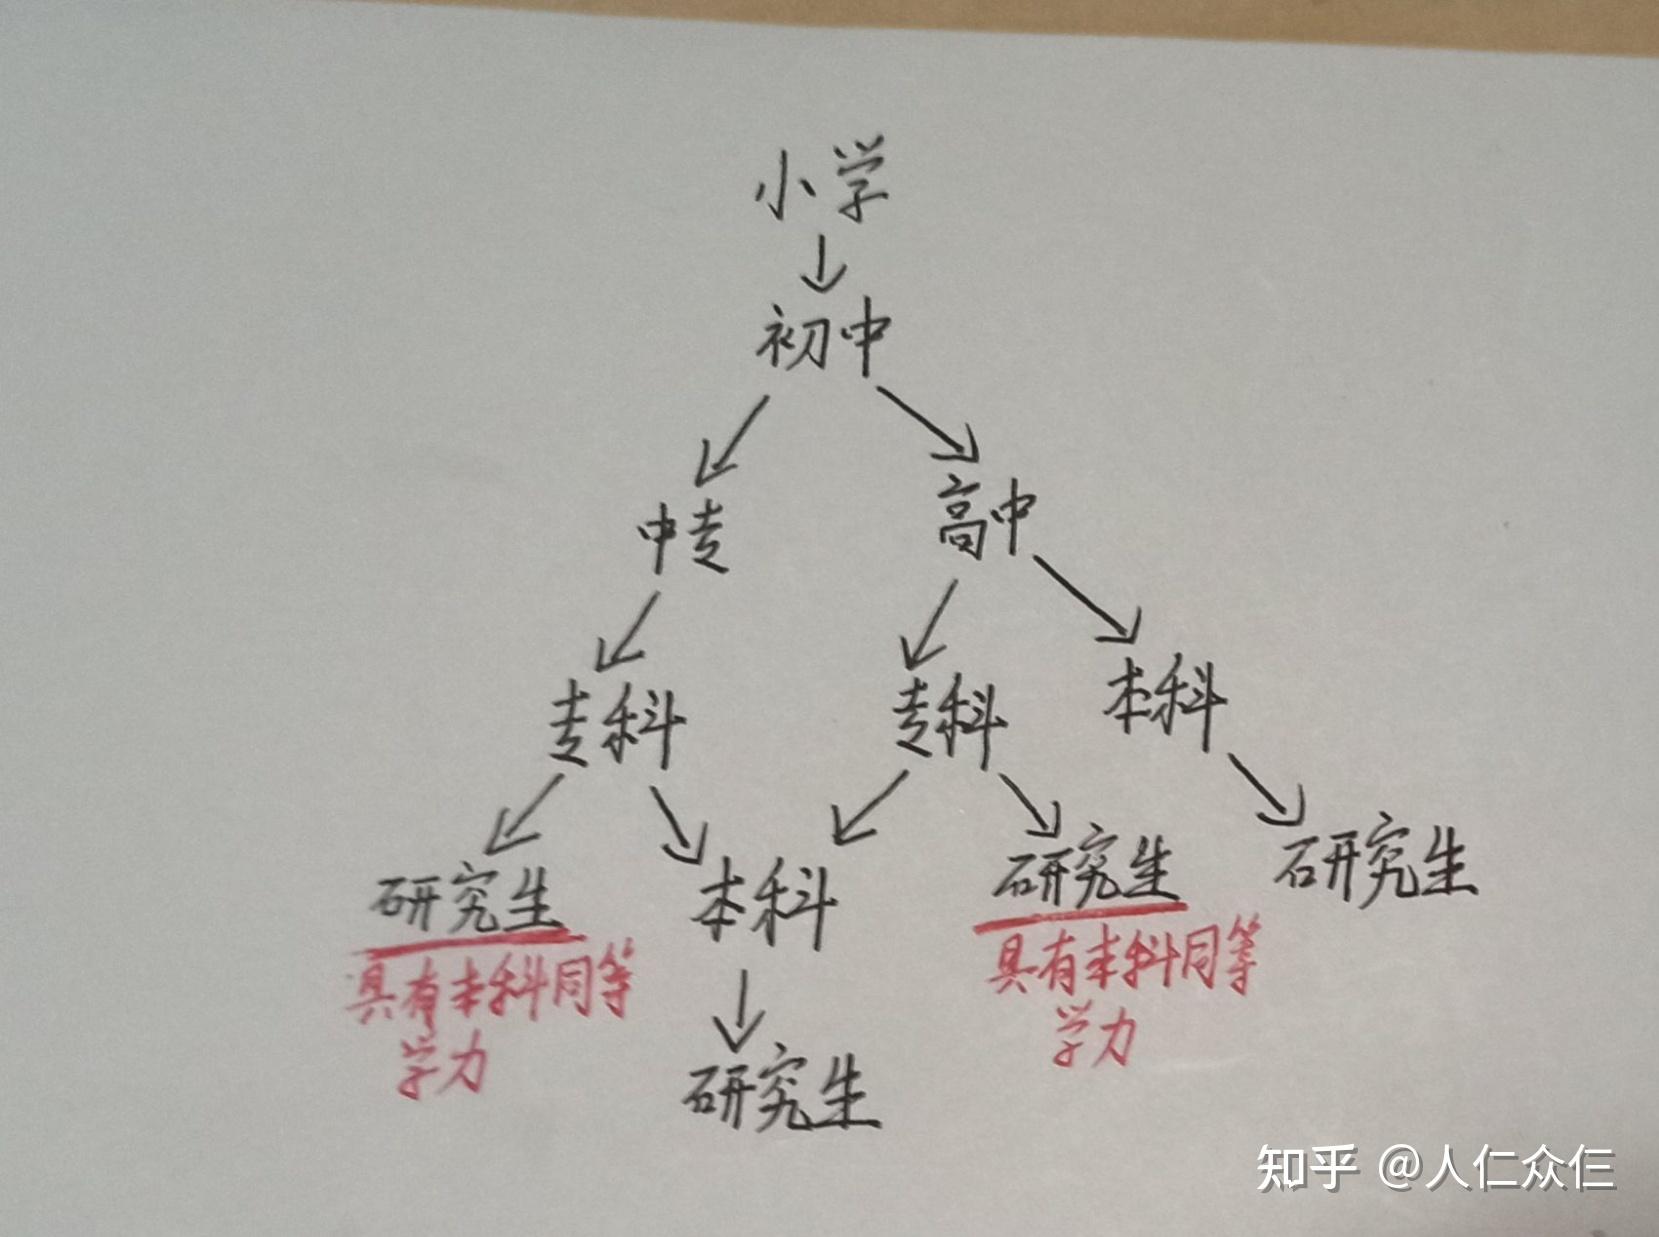 小学
初中
中专
高中
专科
专科
本科
研究生
具有本科同等
学力
本科
研究生
具有本科同等
学力
研究生
研究生
知乎 @人仁众仨